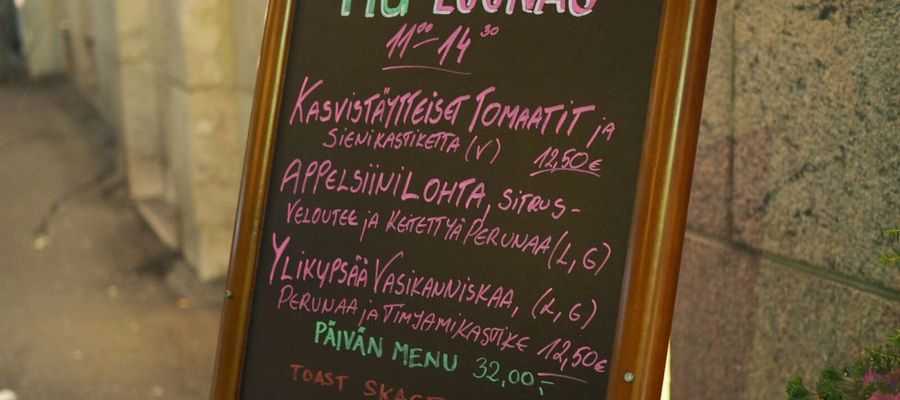 LOUNAS
11⁰⁰-14³⁰
KASVISTÄYTTEISET TOMAATIT ja
SIENIKASTIKETTA (V) 12,50€
APPELSIINILOHTA, SITRUS-
VELOUTEE ja KEITETTYÄ PERUNAA (L, G)
YLIKYPSÄÄ VASIKANNISKAA, (L, G)
PERUNAA ja TIMJAMIKASTIKE 12,50€
PÄIVÄN MENU 32,00,-
TOAST